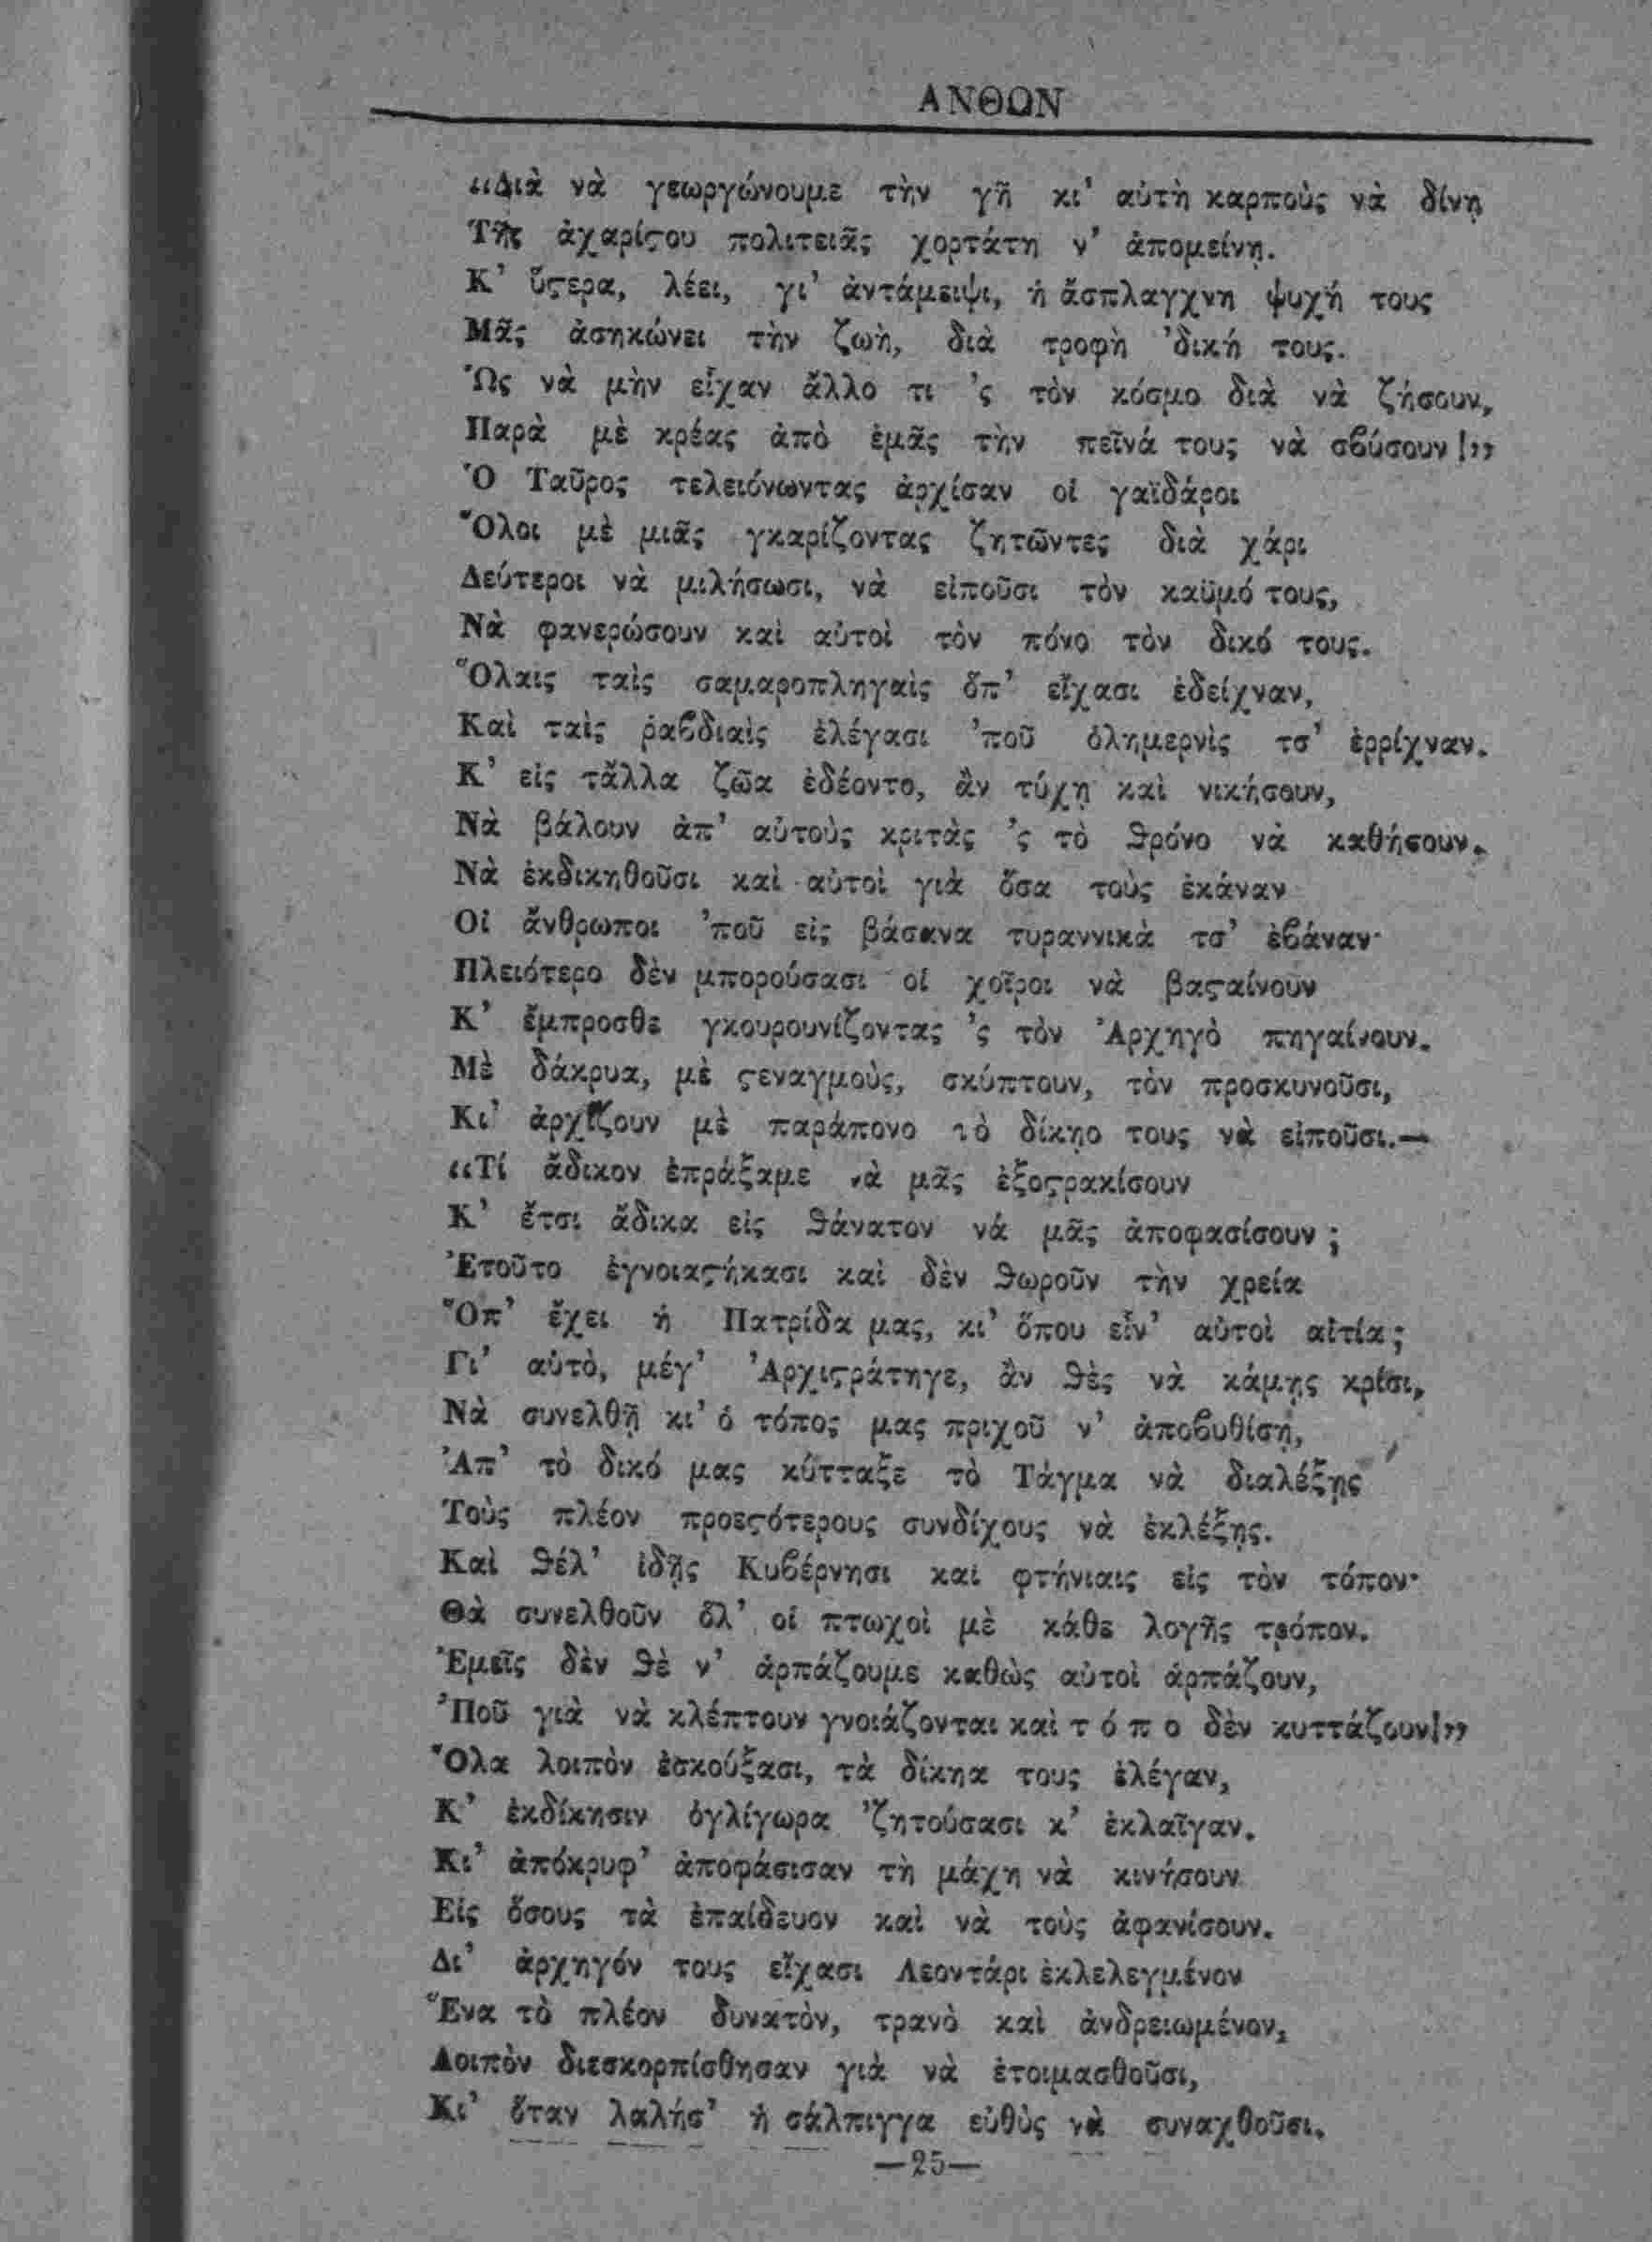 ΑΝΘΩΝ
“Διὰ νὰ γεωργώνουμε τὴν γῆ κι’ αὐτὴ καρποὺς νὰ δίνῃ
Τῆς ἀχαρίϛου πολιτειᾶς χορτάτη ν’ ἀπομείνῃ.
Κ’ ὕϛερα, λέει, γι’ ἀντάμειψι, ἡ ἄσπλαγχνη ψυχή τους
Μᾶς ἀσηκώνει τὴν ζωὴ, διὰ τροφὴ ’δική τους.
Ὡς νὰ μὴν εἶχαν ἄλλο τι ’ς τὸν κόσμο διὰ νὰ ζήσουν,
Παρὰ μὲ κρέας ἀπὸ ἐμᾶς τὴν πεῖνά τους νὰ σϐύσουν!”
Ὁ Ταῦρος τελειόνωντας ἀρχίσαν οἱ γαϊδάροι
Ὅλοι μὲ μιᾶς γκαρίζοντας ζητῶντες διὰ χάρι
Δεύτεροι νὰ μιλήσωσι, νὰ εἰποῦσι τὸν καϋμό τους,
Νὰ φανερώσουν καὶ αὐτοὶ τὸν πόνο τὸν δικό τους.
Ὅλαις ταὶς σαμαροπληγαὶς ὅπ’ εἴχασι ἐδείχναν,
Καὶ ταὶς ῥαϐδιαὶς ἐλέγασι ’ποῦ ὁλημερνὶς τσ’ ἐρρίχναν.
Κ’ εἰς τἄλλα ζῶα ἐδέοντο, ἂν τύχῃ καὶ νικήσουν,
Νὰ βάλουν ἀπ’ αὐτοὺς κριτὰς ’ς τὸ ϑρόνο νὰ καθήσουν.
Νὰ ἐκδικηθοῦσι καὶ αὐτοὶ γιὰ ὅσα τοὺς ἐκάναν
Οἱ ἄνθρωποι ’ποῦ εἰς βάσανα τυραννικὰ τσ’ ἐϐάναν·
Πλειότερο δὲν μπορούσασι οἱ χοῖροι νὰ βαϛαίνουν
Κ’ ἔμπροσθε γκουρουνίζοντας ’ς τὸν Ἀρχηγὸ πηγαίνουν.
Μὲ δάκρυα, μὲ ϛεναγμοὺς, σκύπτουν, τὸν προσκυνοῦσι,
Κι’ ἀρχίζουν μὲ παράπονο τὸ δίκῃο τους νὰ εἰποῦσι.—
“Τί ἄδικον ἐπράξαμε νὰ μᾶς ἐξοϛρακίσουν
Κ’ ἔτσι ἄδικα εἰς ϑάνατον νά μᾶς ἀποφασίσουν ;
Ἐτοῦτο ἐγνοιαϛήκασι καὶ δὲν ϑωροῦν τὴν χρεία
Ὅπ’ ἔχει ἡ Πατρίδα μας, κι’ ὅπου εἶν’ αὐτοὶ αἰτία;
Γι’ αὐτὸ, μέγ’ Ἀρχιϛράτηγε, ἂν ϑὲς νὰ κάμῃς κρίσι,
Νὰ συνελθῇ κι’ ὁ τόπος μας πριχοῦ ν’ ἀποϐυθίσῃ,
Ἀπ’ τὸ δικό μας κύτταξε τὸ Τάγμα νὰ διαλέξῃς
Τοὺς πλέον προεϛότερους συνδίχους νὰ ἐκλέξῃς.
Καὶ ϑέλ’ ἰδῇς Κυϐέρνησι καὶ φτήνιαις εἰς τὸν τόπον·
Θὰ συνελθοῦν ὅλ’ οἱ πτωχοὶ μὲ κάθε λογῆς τρόπον.
Ἐμεῖς δὲν ϑὲ ν’ ἁρπάζουμε καθὼς αὐτοὶ ἁρπάζουν,
Ποῦ γιὰ νὰ κλέπτουν γνοιάζονται καὶ τ ό π ο δὲν κυττάζουν!”
Ὅλα λοιπὸν ἐσκούξασι, τὰ δίκηα τους ἐλέγαν,
Κ’ ἐκδίκησιν ὀγλίγωρα ’ζητούσασι κ’ ἐκλαῖγαν.
Κι’ ἀπόκρυφ’ ἀποφάσισαν τὴ μάχη νὰ κινήσουν
Εἰς ὅσους τὰ ἐπαίδευον καὶ νὰ τοὺς ἀφανίσουν.
Δι’ ἀρχηγόν τους εἴχασι Λεοντάρι ἐκλελεγμένον
Ἕνα τὸ πλέον δυνατὸν, τρανὸ καὶ ἀνδρειωμένον,
Λοιπὸν διεσκορπίσθησαν γιὰ νὰ ἑτοιμασθοῦσι,
Κι’ ὅταν λαλήσ’ ἡ σάλπιγγα εὐθὺς νὰ συναχθοῦσι.
—25—